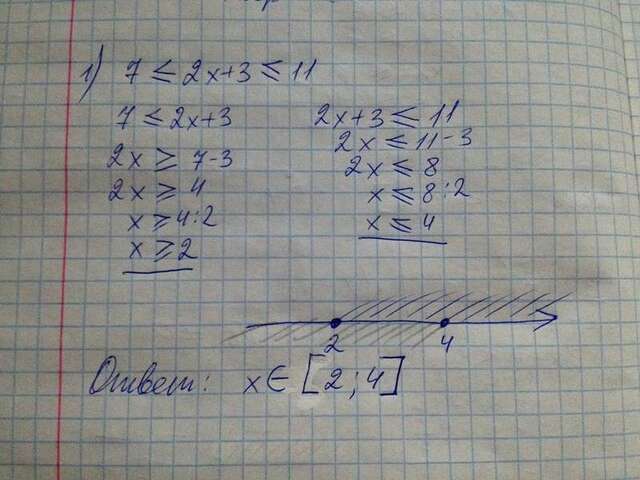 1) 7 ≤ 2x+3 ≤ 11
7 ≤ 2x+3
2x ≥ 7-3
2x ≥ 4
x ≥ 4:2
x ≥ 2
2x+3 ≤ 11
2x ≤ 11-3
2x ≤ 8
x ≤ 8:2
x ≤ 4
2 4
Ответ: x ∈ [2; 4]